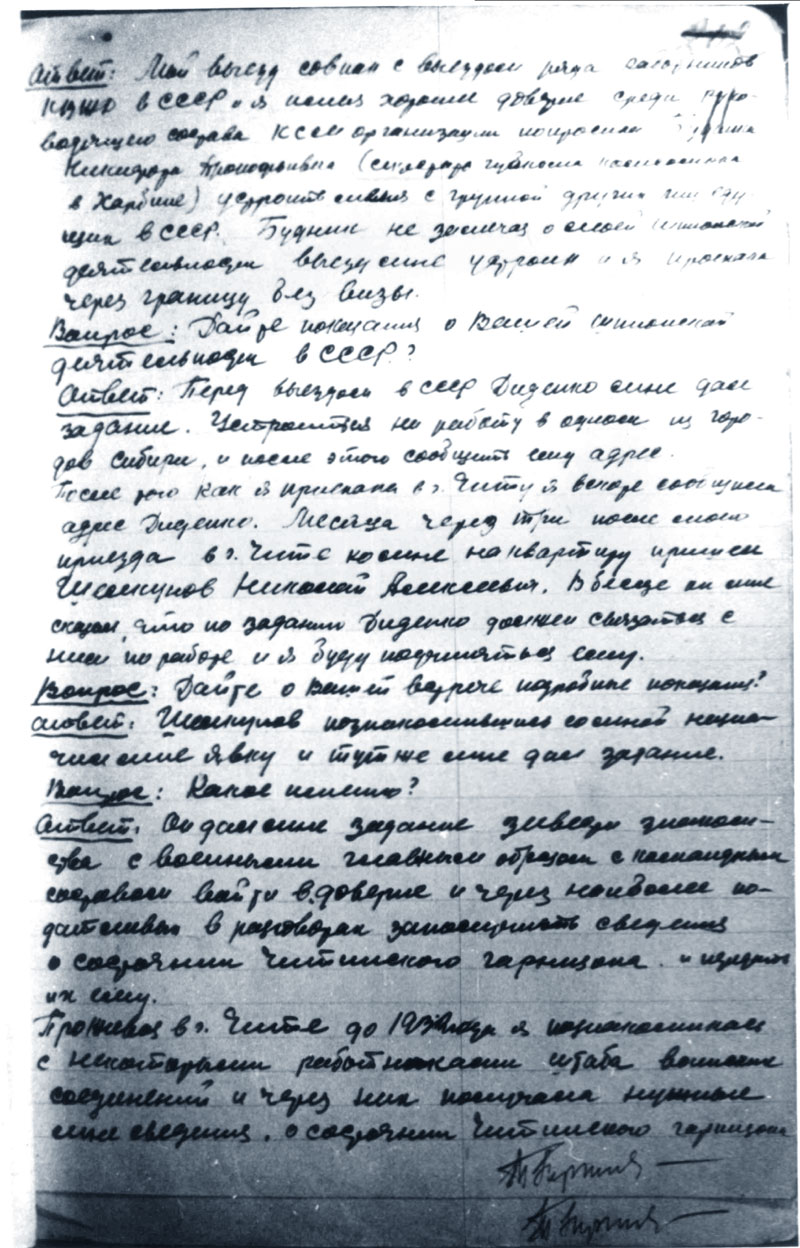 Ответ: Мой выезд совпал с выездом ряда
КВЖД в СССР и я имея хорошее доверие среди руко-
водящего состава КСМ организации попросила Будника
Никифора Прокофьевича (секретаря
в Харбине) устроить меня с группой других лиц еду-
щих в СССР. Будник не замечая о моей шпионской
деятельности выезд мне устроил и я проехала
через границу без визы.
Вопрос: Дайте показания о Вашей шпионской
деятельности в СССР?
Ответ: Перед выездом в СССР Диденко мне дал
задание. Устроиться на работу в одном из горо-
дов Сибири, и после этого сообщить ему адрес.
После того как я приехала в г. Читу я вскоре сообщила
адрес Диденко. Месяца через три после моего
приезда в г. Чите ко мне на квартиру пришел
Шемкунов Николай Алексеевич. В беседе он мне
сказал, что по заданию Диденко должен связаться с
ним по работе и я буду подчиняться ему.
Вопрос: Дайте о Вашей встрече подробные показания?
Ответ: познакомившись со мной назна-
чил мне явку и тут же мне дал задание.
Вопрос: Какое именно?
Ответ. Он дал мне задание завести знаком-
ства с военными главным образом с командным
составом войти в доверие и через наиболее по-
датливых в разговорах запомнить сведения
о состоянии Читинского гарнизона. и передать
их ему.
Проживая в г. Чите до года я познакомилась
с некоторыми работниками штаба воинских
соединений и через них получала нужные
мне сведения. о состоянии Читинского гарнизона